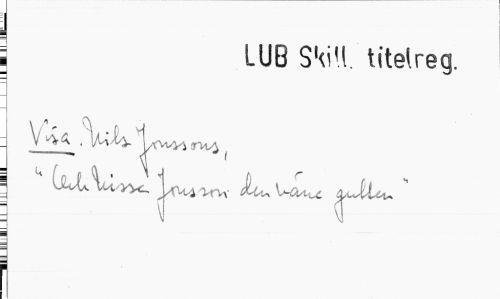 LUB Skill. titelreg.
Visa. Nils Jonssons,
"Och Nissa Jonsson den väne gutten"